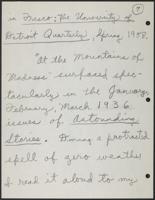 9
in Fresco: The University of
Detroit Quarterly, Spring 1958.
"At the Mountains of
Madness" surfaced spec-
tacularly in the January,
February, March 1936
issues of Astounding
Stories. During a protracted
spell of zero weather
I read it aloud to my